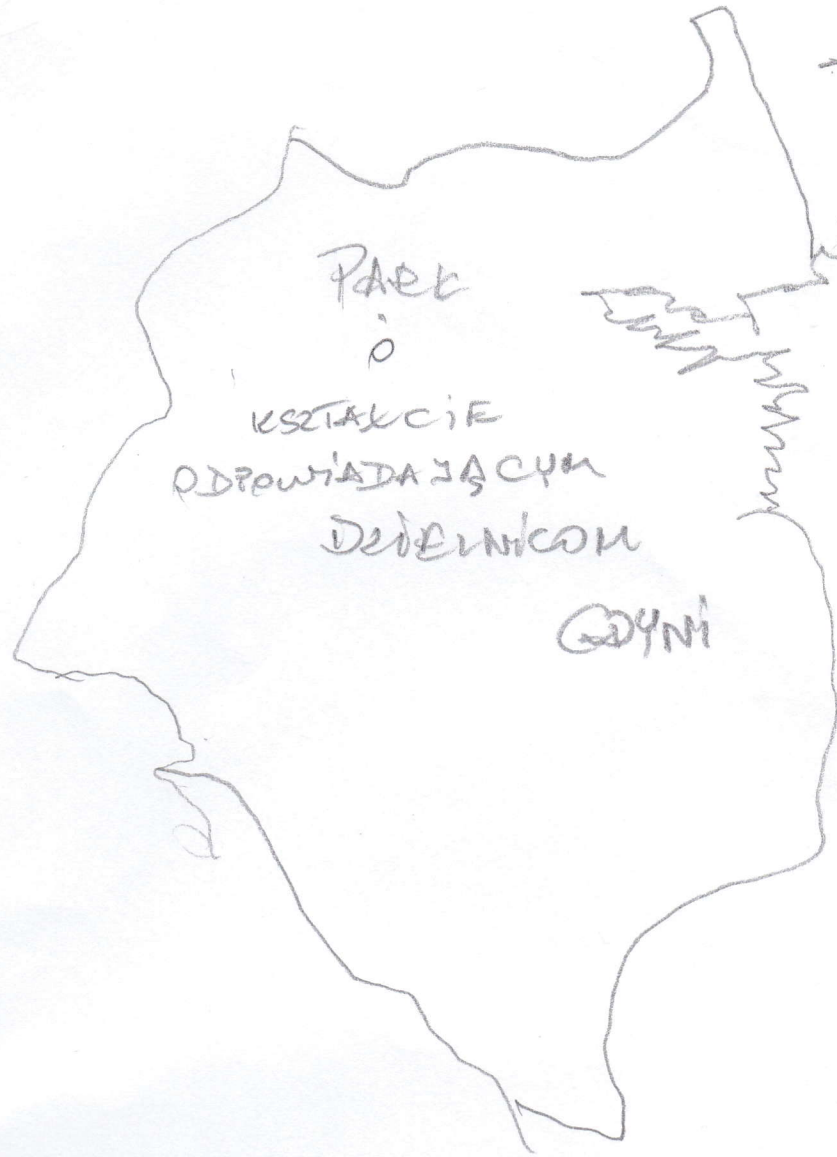 PARK
O
KSZTAŁCIE
ODPOWIADAJĄCYM
DZIELNICOM
GDYNI